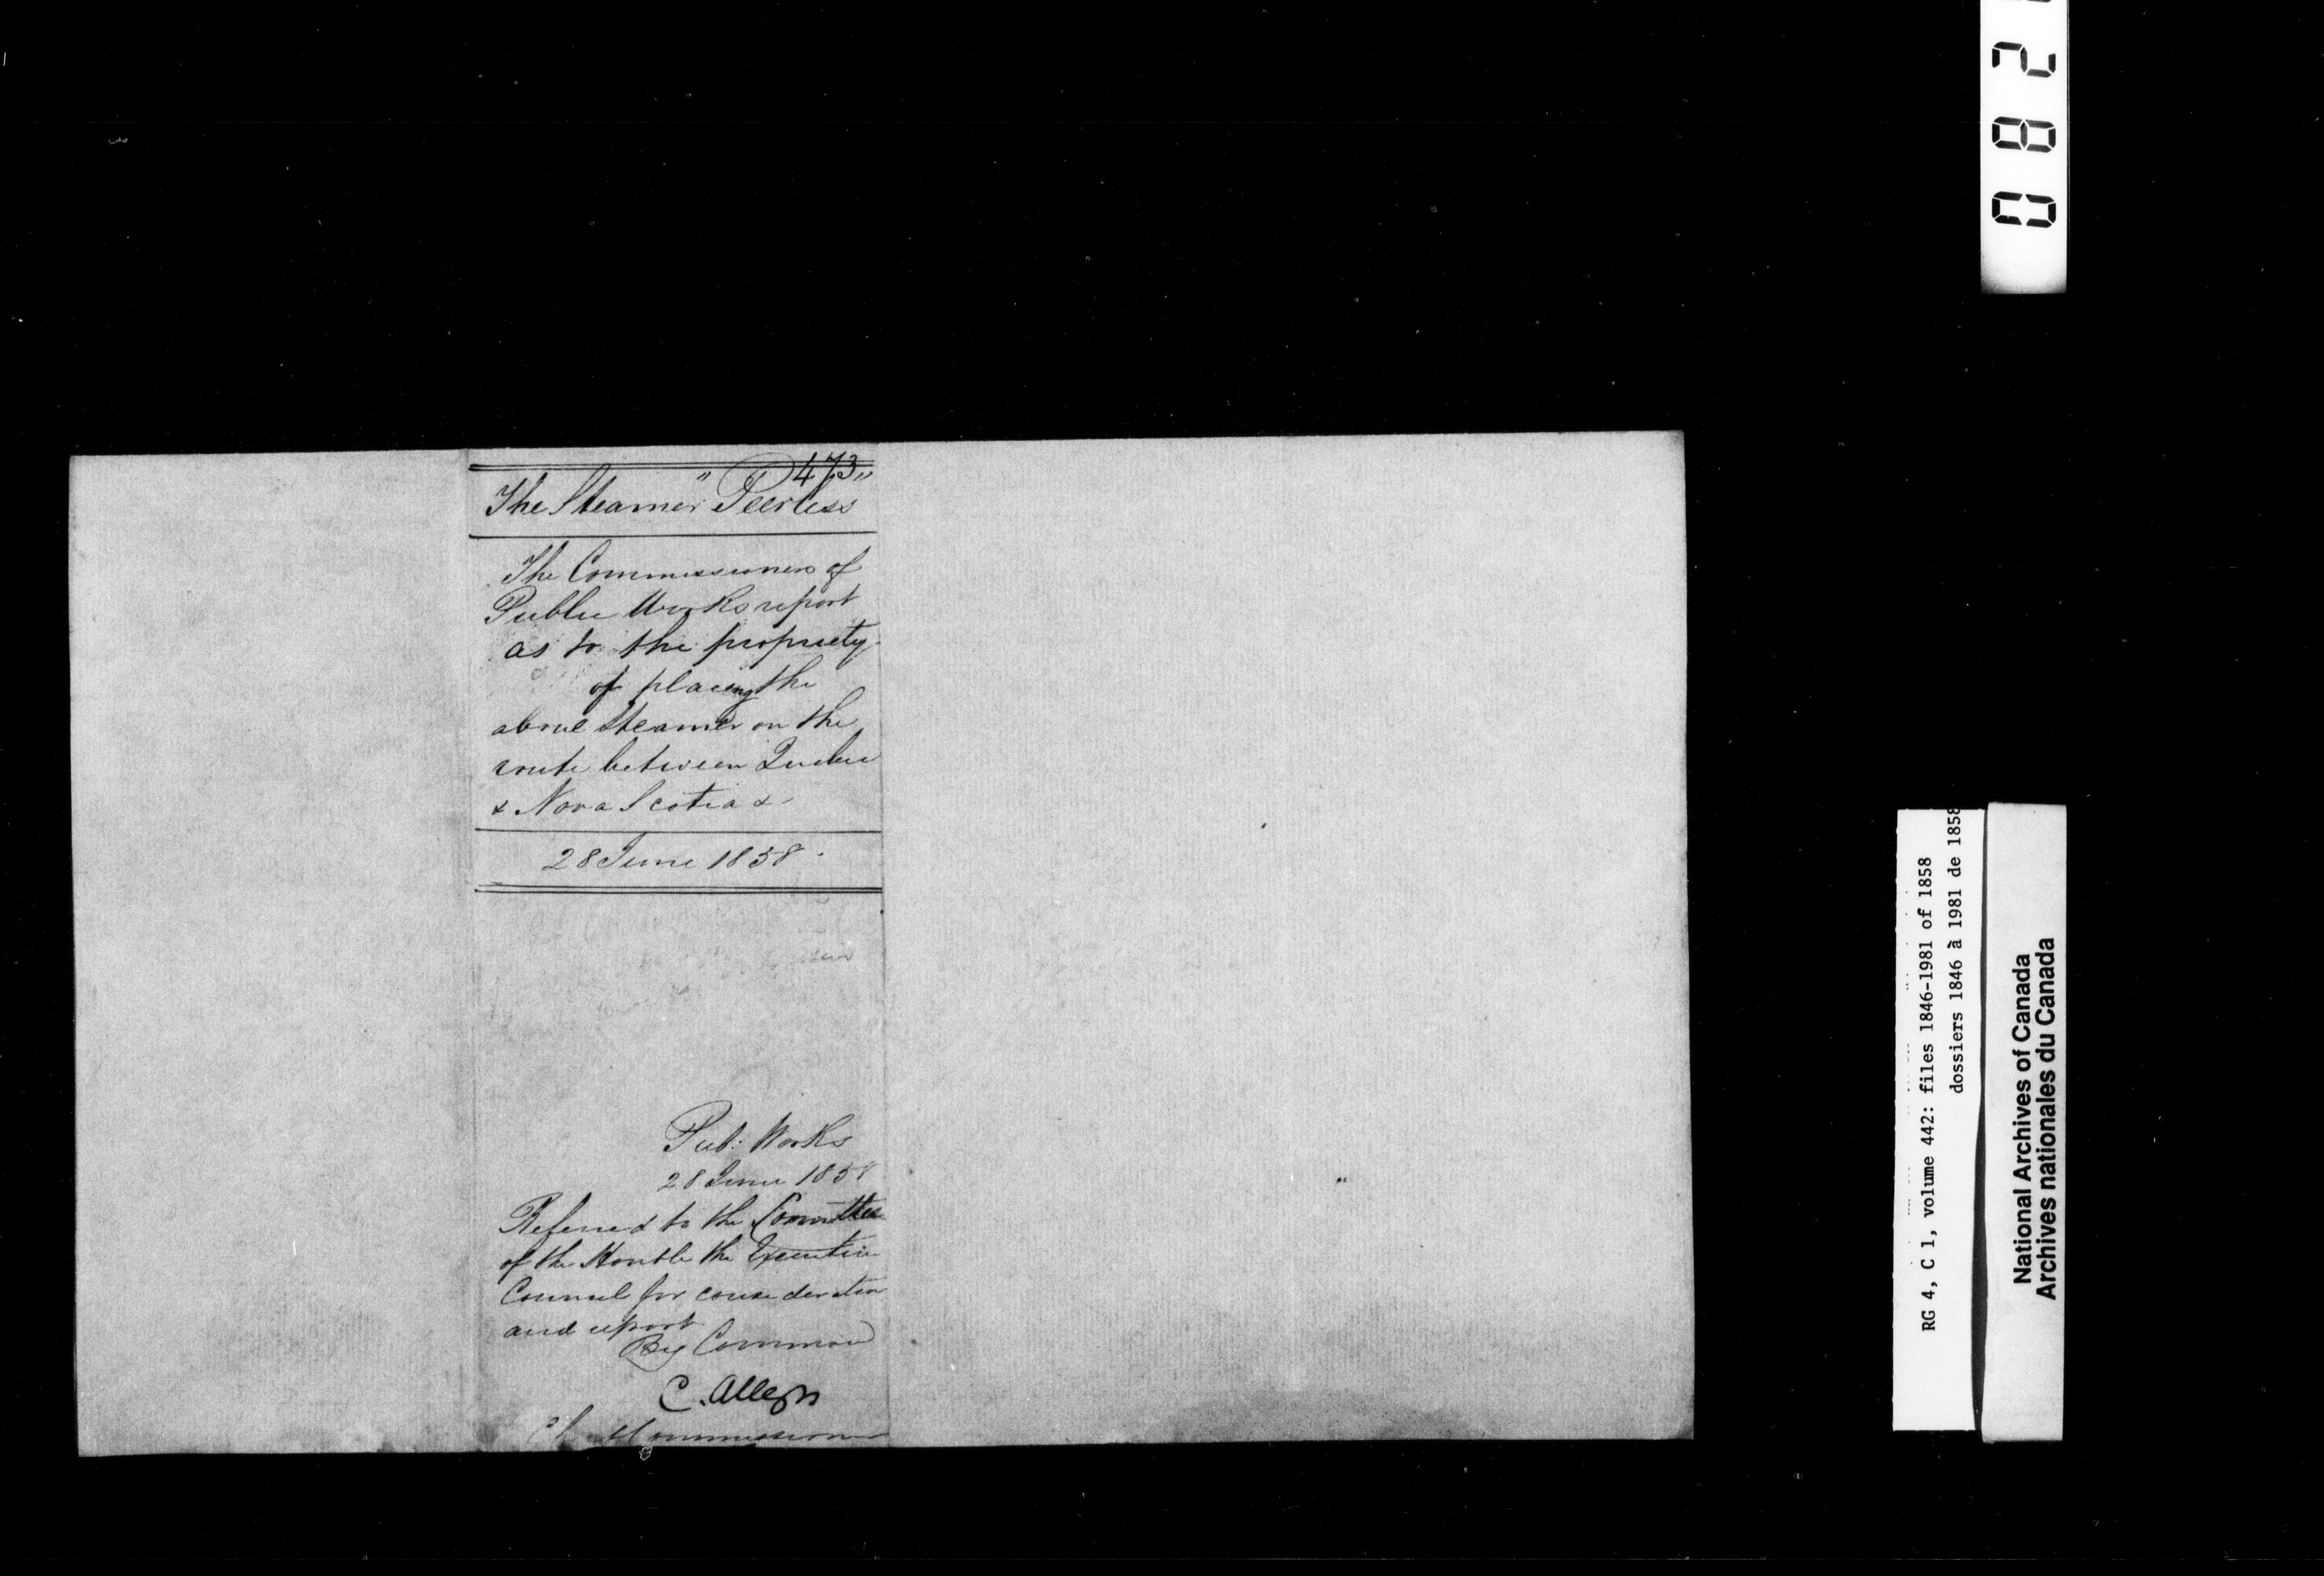 473
The Steamer "Peerless"
The Commissioners of
Public Works report
as to the propriety
of placing the
above Steamer on the
route between Quebec
& Nova Scotia &
28 June 1858
Pub: Works
28 June 1858
Referred to the Committee
of the Honble the Executive
Council for consideration
and report
By Command
C. Alleyn
Commissioner
082
RG 4, C 1, volume 442: files 1846-1981 of 1858
dossiers 1846 à 1981 de 1858
National Archives of Canada
Archives nationales du Canada